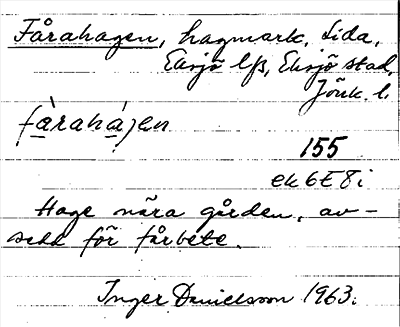 Fårahagen, hagmark, Lida,
Eksjö lfs, Eksjö stad,
Jönk. l.
fàrahá̱jen
155
ek 6E 8i
Hage nära gården, av-
sedd för fårbete.
Inger Danielsson 1963.